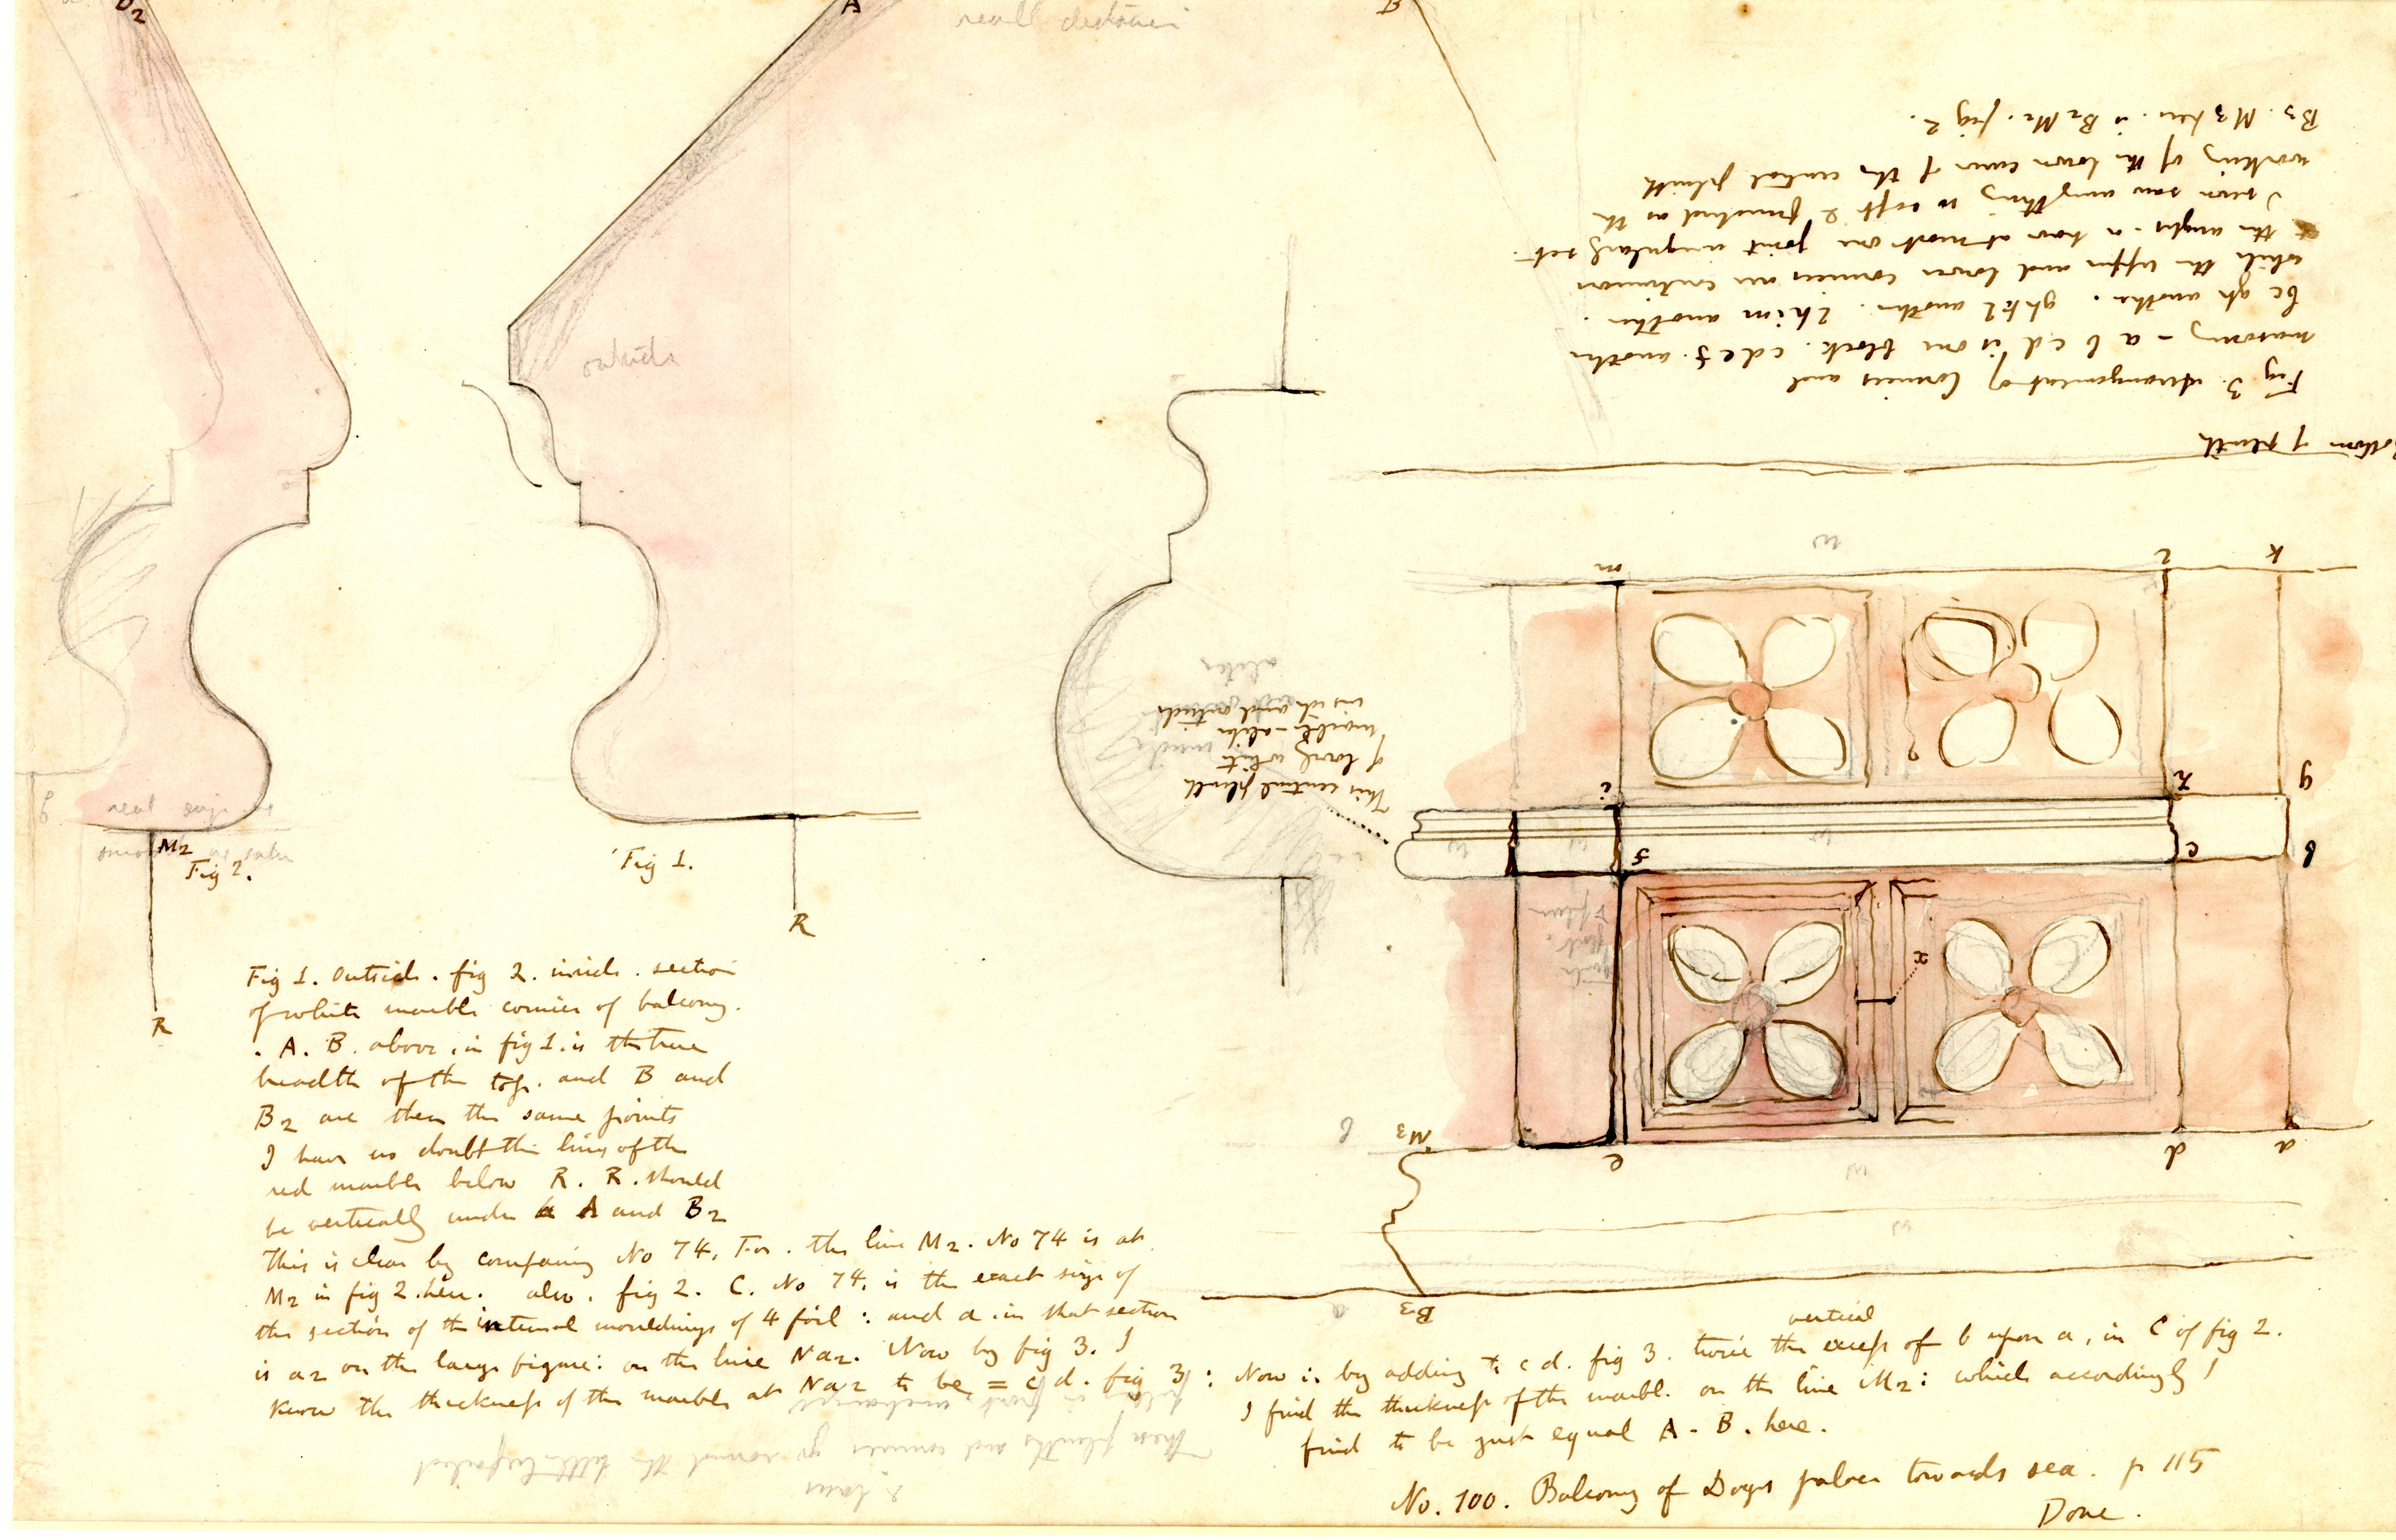 D2
A
real distance
B
outside
Fig 3. Arrangement of Cornices and
masonry - a b c d is one block. c d e f. another
bc gh another. ghkl another. lhim another.
while the upper and lower cornices are continuous
the angles - or have at most one joint irregularly set.
I never saw anything so soft & finished as the
working of the lower curve of the central plinth
B3. M3 here. is B2 M2. fig 2.
Bottom of plinth
w
m
l
k
i
h
g
f
c
b
x
w
w
w
This central plinth
of lovely white
marble - alike
inside and outside
alike
M3
e
d
a
w
w
b
a
B3
g
real
M2
Fig 2.
R
Fig 1.
R
Fig 1. Outside. fig 2. inside. section
of white marble cornice of balcony.
. A. B. above. in fig 1. is the true
breadth of the top. and B and
B2 are then the same points
I have no doubt the lines of the
red marble below R. R. should
be vertically under A and B2
This is clear by comparing No 74. For. the line M2. No 74 is at
M2 in fig 2. here. also. fig 2. C. No 74. is the exact size of
the section of the internal mouldings of 4 foil : and a in that section
is a2 on the large figure: on the line Na2. Now by fig 3. I
know the thickness of the marble at Na2 to be = cd. fig 3 :
Now is by adding to c d. fig 3. twice the vertical excess of b upon a, in C of fig 2.
I find the thickness of the marble. on the line M2: which accordingly I
find to be just equal A - B. here.
These plinths and cornices go round the
No. 100. Balcony of Doges palace towards sea. p 115
Done.